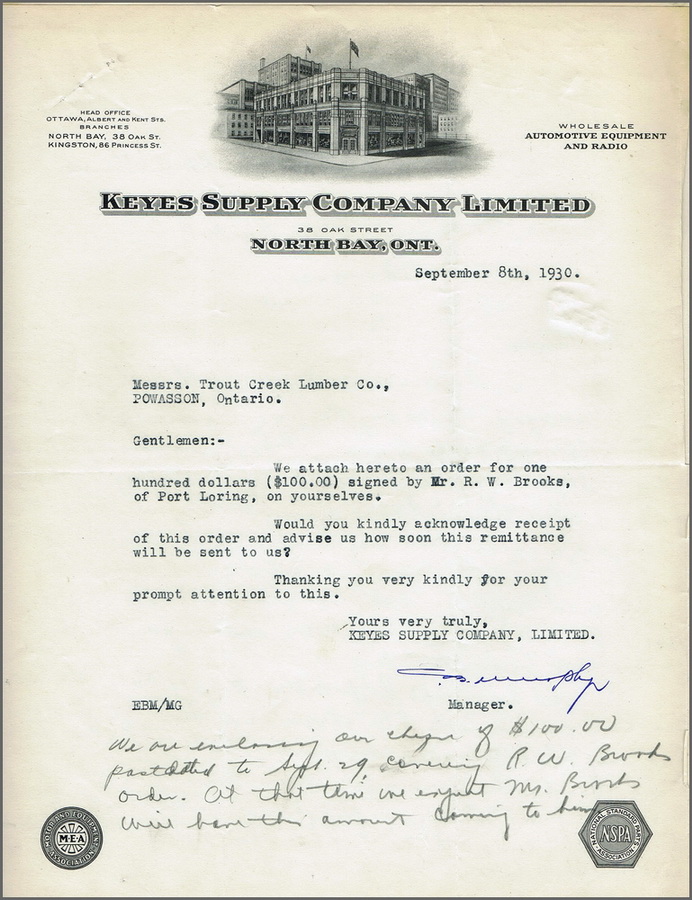 HEAD OFFICE
OTTAWA, ALBERT AND KENT STS.
BRANCHES
NORTH BAY, 38 OAK ST.
KINGSTON, 86 PRINCESS ST.
WHOLESALE
AUTOMOTIVE EQUIPMENT
AND RADIO
KEYES SUPPLY COMPANY LIMITED
38 OAK STREET
NORTH BAY, ONT.
September 8th, 1930.
Messrs. Trout Creek Lumber Co.,
POWASSON, Ontario.
Gentlemen:-
We attach hereto an order for one
hundred dollars ($100.00) signed by Mr. R. W. Brooks,
of Port Loring, on yourselves.
Would you kindly acknowledge receipt
of this order and advise us how soon this remittance
will be sent to us?
Thanking you very kindly for your
prompt attention to this.
Yours very truly,
KEYES SUPPLY COMPANY, LIMITED.
Murphy
EBM/MG
Manager.
We are enclosing our cheque of $100.00
postdated to Sept. 29, covering R. W. Brooks
order. At that time we expect Mr. Brooks
will have this amount coming to him
MOTOR AND EQUIPMENT
M·E·A
ASSOCIATION
NATIONAL STANDARD PARTS
NSPA
ASSOCIATION